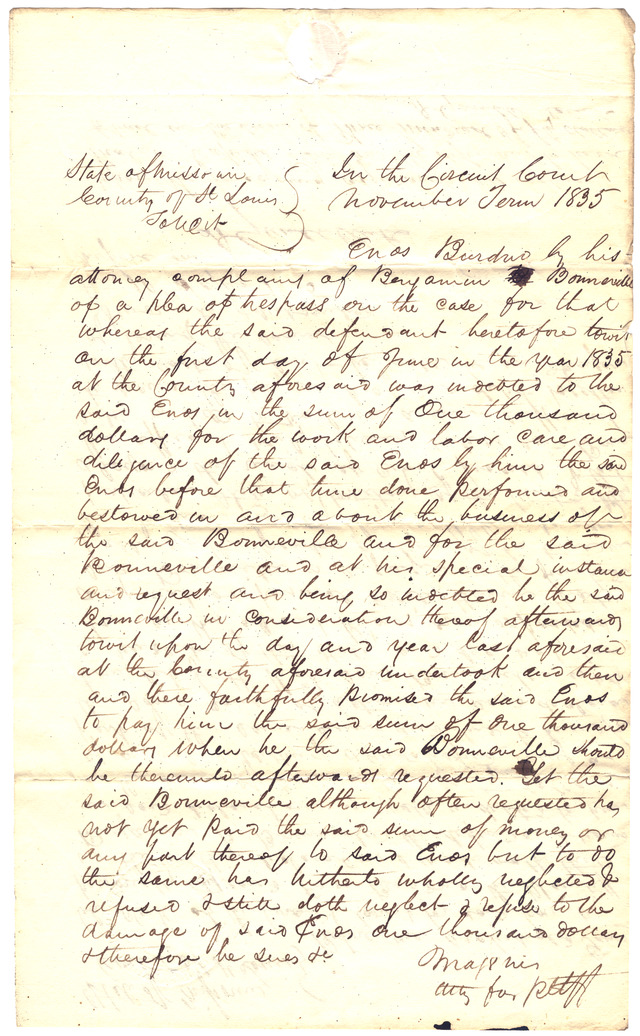 State of Missouri
County of St Louis
Towit
In the Circuit Court
November Term 1835
Enos Burdno by his
attorney complains of Benjamin Bonneville
of a plea of trespass on the case for that
whereas the said defendant heretofore towit
on the first day of June in the year 1835
at the County aforesaid was indebted to the
said Enos in the sum of One thousand
dollars for the work and labor care and
diligence of the said Enos by him the said
Enos before that time done performed and
bestowed in and about the business of
the said Bonneville and for the said
Bonneville and at his special instance
and request and being so indebted he the said
Bonneville in consideration thereof afterwards
towit upon the day and year last aforesaid
at the County aforesaid undertook and then
and there faithfully promised the said Enos
to pay him the said sum of one thousand
dollars when he the said Bonneville should
be thereunto afterwards requested. Yet the
said Bonneville although often requested has
not yet paid the said sum of money or
any part thereof to said Enos but to do
the same has hitherto wholly neglected &
refused & still doth neglect & refuse to the
damage of said Enos one thousand dollars
& therefore he sues &c
Atty for Pltff